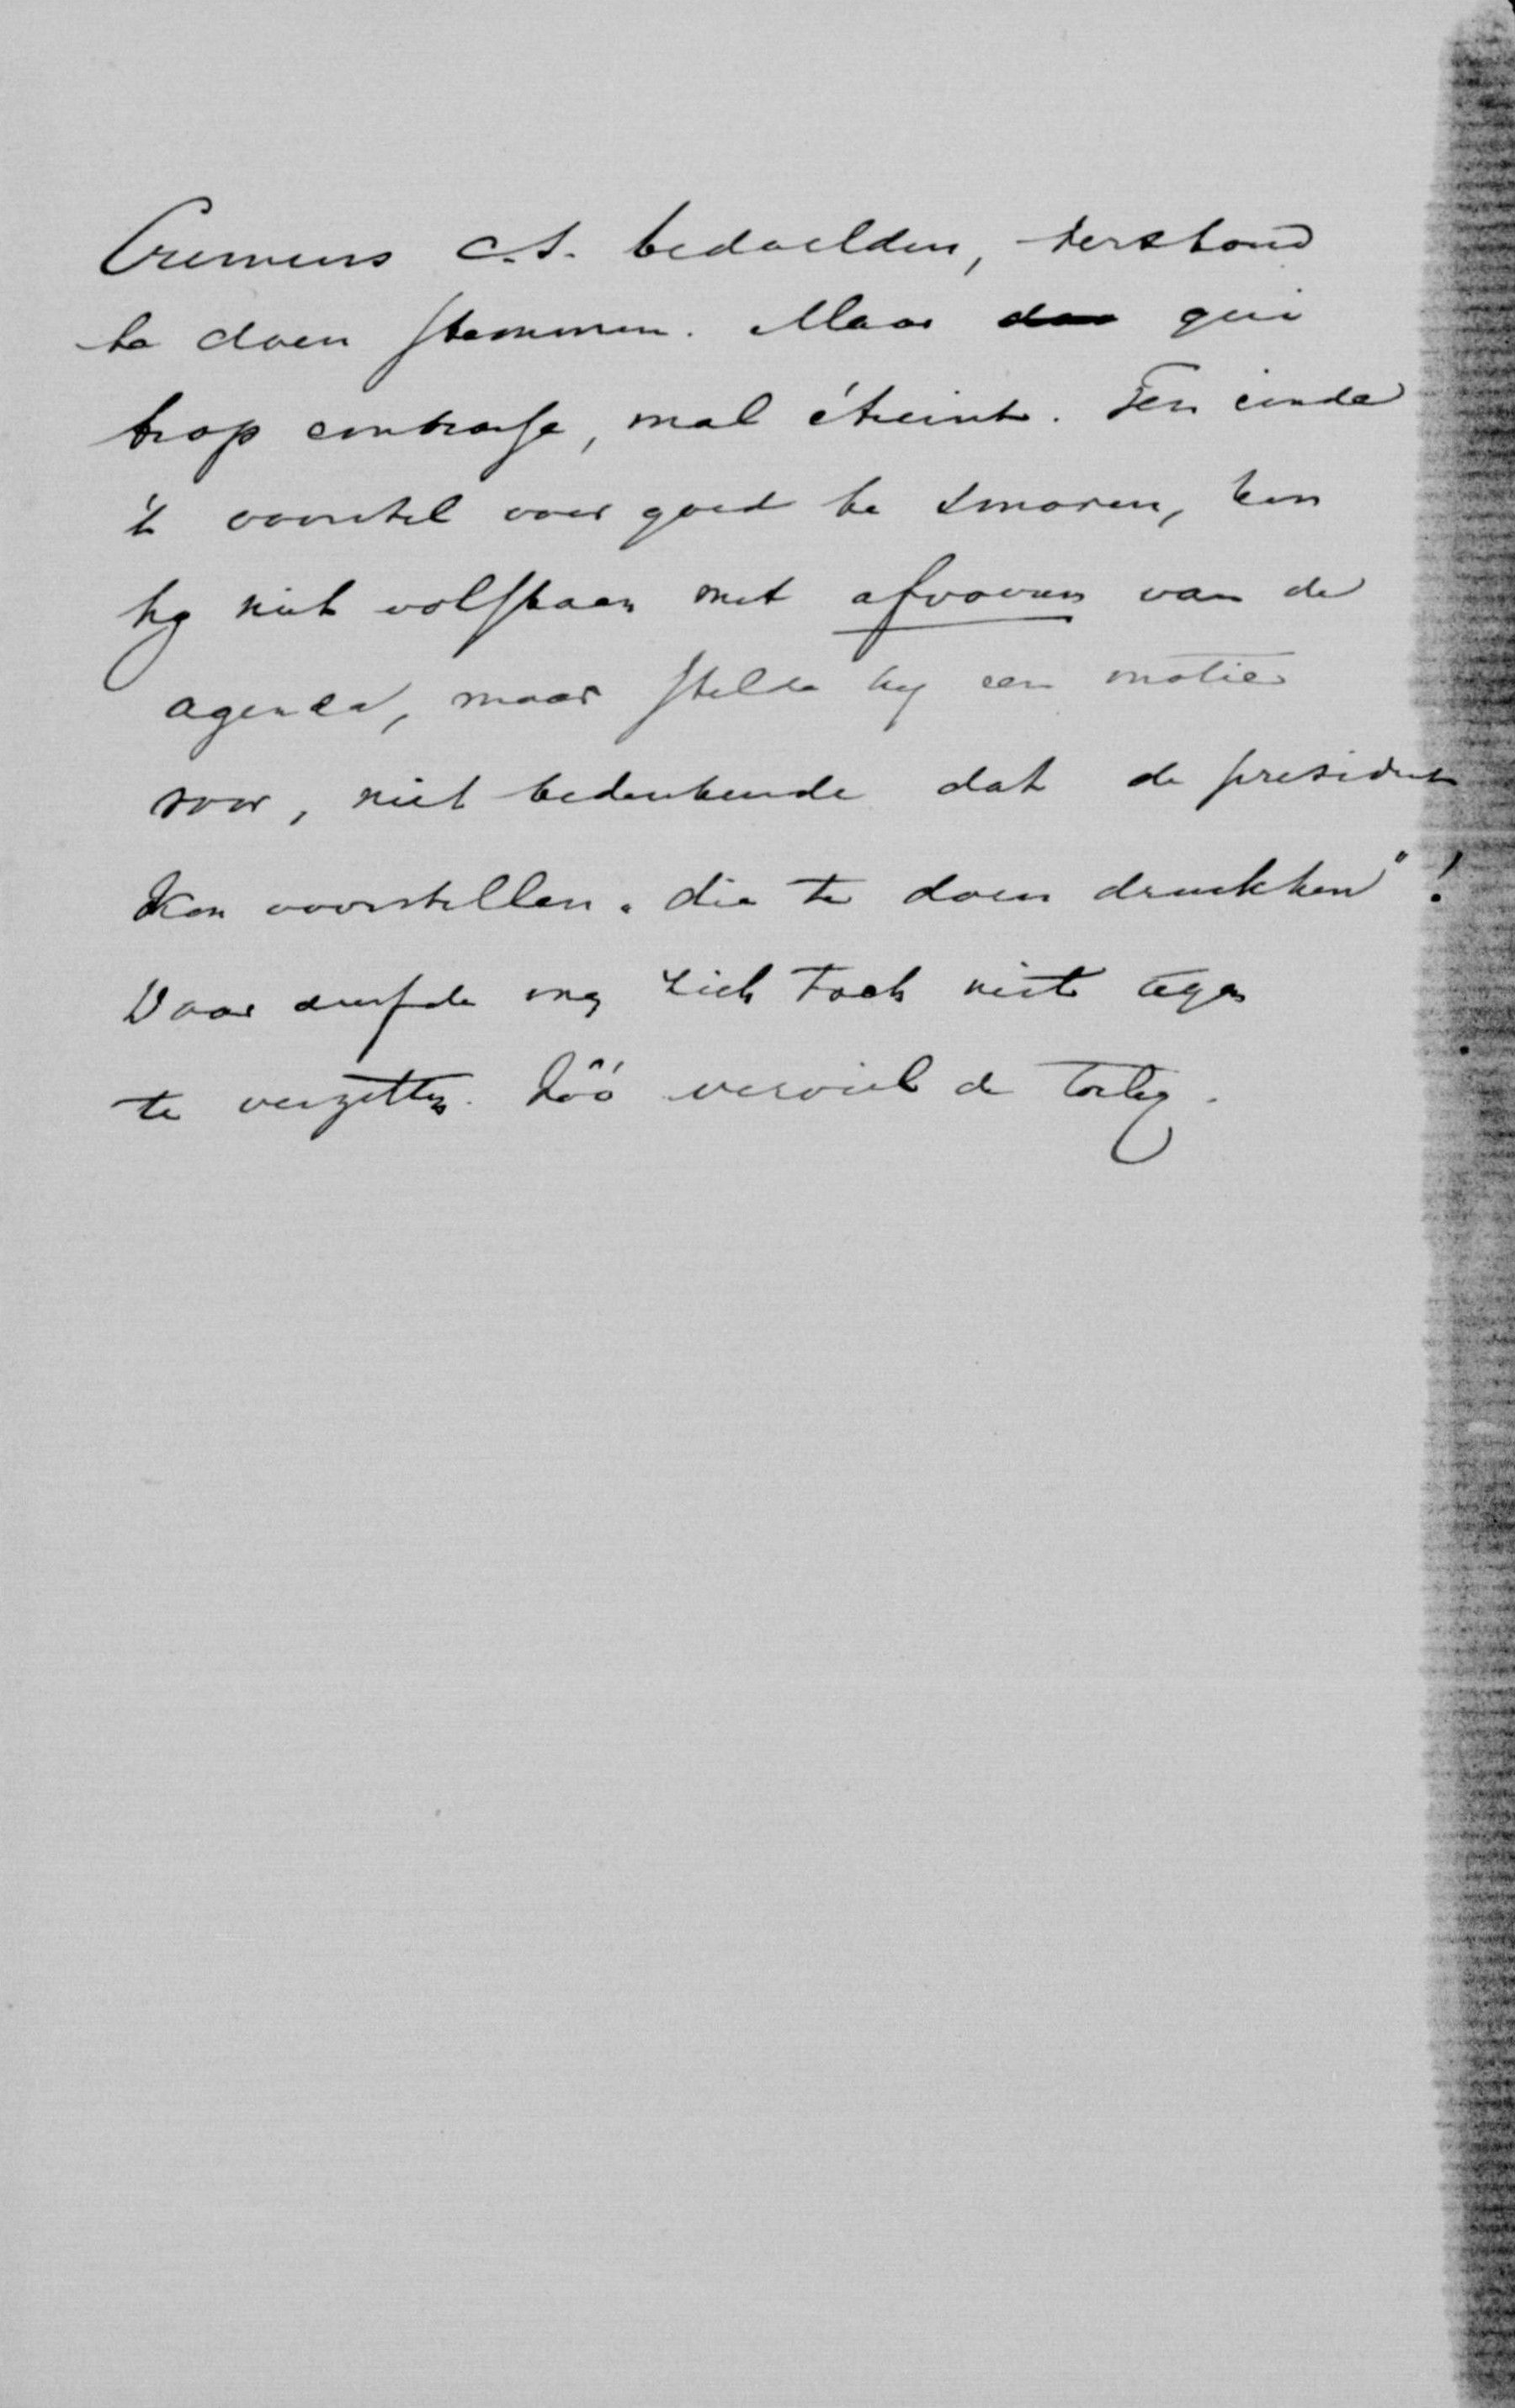 Cremers c.s. bedoelden, terstond
te doen stemmen. Maar qui
trop embrasse, mal étreint. Ten einde
't voorstel voor goed te smoren, kon
hy niet volstaan met afvoeren van de
agenda, maar stelde hy een motie
voor, niet bedenkende dat de president
kon voorstellen „die te doen drukken"!
Daar durfde men zich toch niet tegen
te verzetten. Zóó verviel de toeleg.